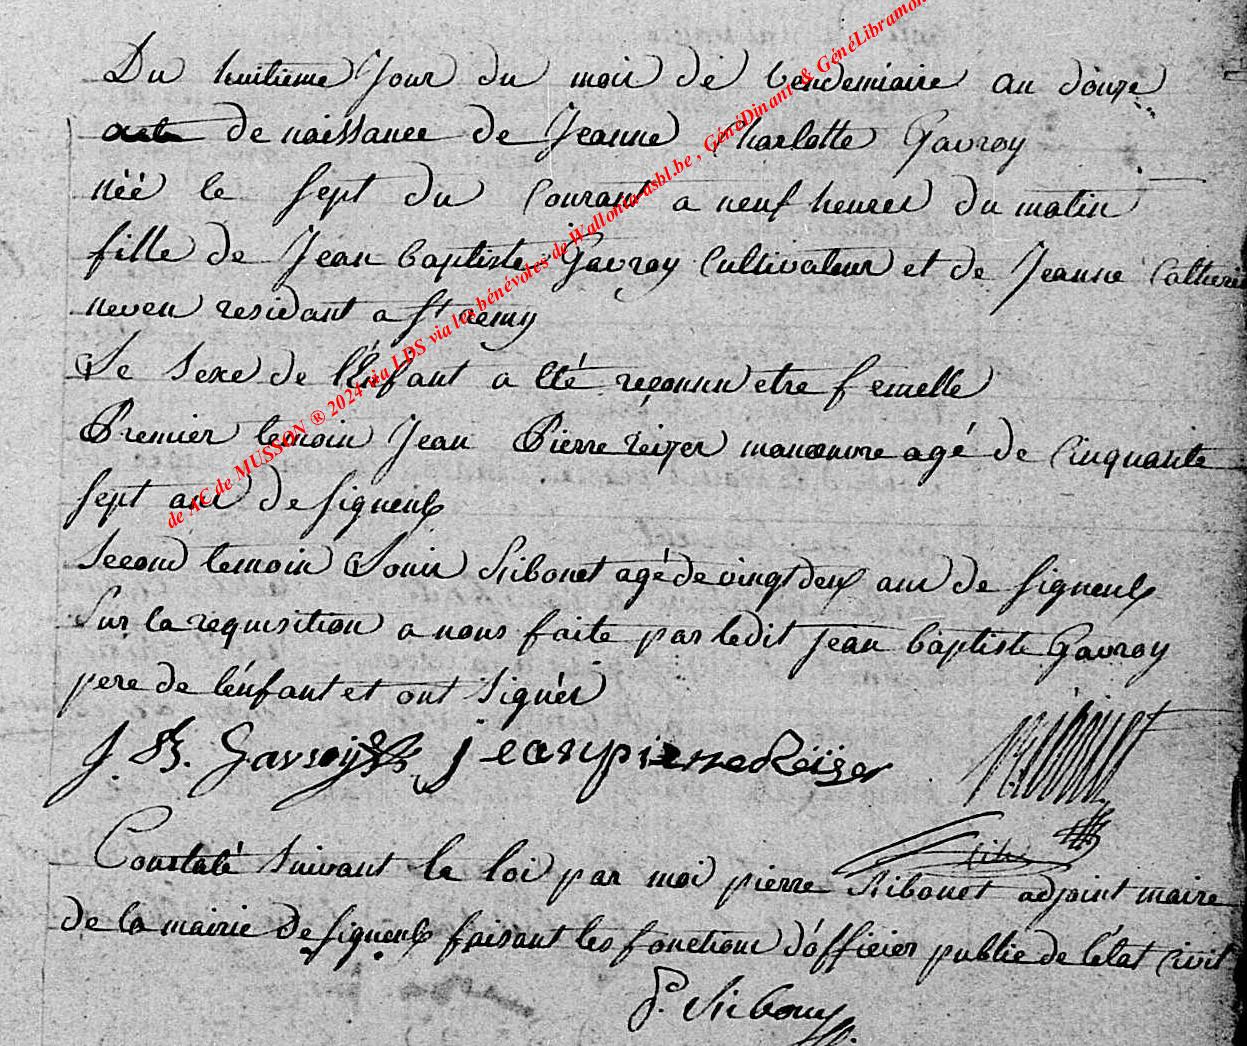 Du huitieme Jour du mois de vendemiaire an douze
acte de naissance de Jeanne Charlotte Gavroy
néé le sept du Courant a neuf heures du matin
fille de Jean baptiste Gavroy Cultivateur et de Jeanne Catheri
neven residant a St remy
Le sexe de l'Enfant a Eté reconnu etre femelle
Premier temoin Jean Pierre reizer manoeuvre agé de Cinquante
sept ans de signeulx
second temoin Louis Ribonet agé de vingt deux ans de signeulx
sur la requisition a nous faite par ledit jean baptiste Gavroy
pere de l'énfant et ont signés
J. B. Gavroij jean pierre Reizer
Constaté suivant la loi par moi pierre Ribonet adjoint maire
de la mairie de signeulx faisant les fonctions d'officier public de l'état Civil
de AC de MUSSON ® 2024 via LDS via les bénévoles de Wallonia asbl.be , GénéDinant & GénéLibramon